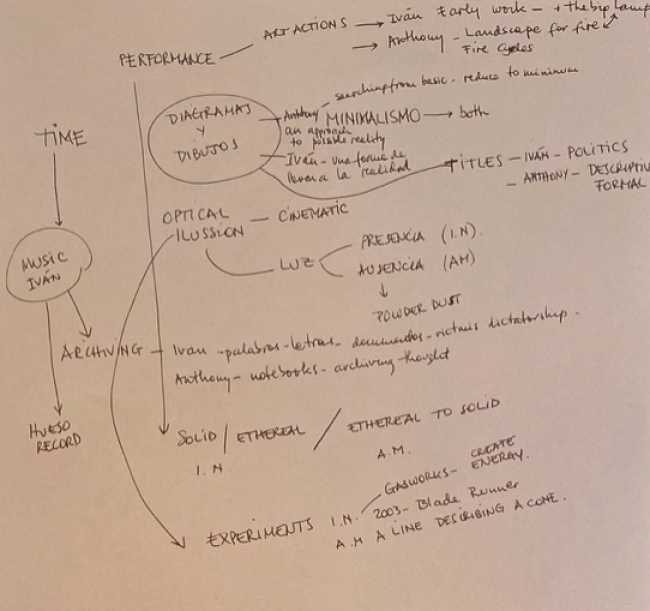 ART ACTIONS → Iván Early work - + the big lamp
→ Anthony - Landscape for fire
Fire Cycles
PERFORMANCE
TIME
DIAGRAMAS
Y
DIBUJOS
Anthony - searching from basic. reduce to minimum
an approach
to possible reality
MINIMALISMO → both
Iván - una forma de
llevar a la realidad
TITLES - IVÁN - POLITICS
- ANTHONY - DESCRIPTIV
FORMAL
OPTICAL
ILUSSION - CINEMATIC
LUZ
PRESENCIA (I.N).
AUSENCIA (AM)
↓
POWDER DUST
MUSIC
IVÁN
ARCHIVING - Ivan - palabras - letras - documentos - victims dictatorship.
Anthony - notebooks - archiving thought
HUESO
RECORD
SOLID / ETHEREAL / ETHEREAL TO SOLID
I.N
A.M.
EXPERIMENTS I.N. GASWORKS - CREATE
ENERGY.
2003 - Blade Runner
A.M A LINE DESCRIBING A CONE.